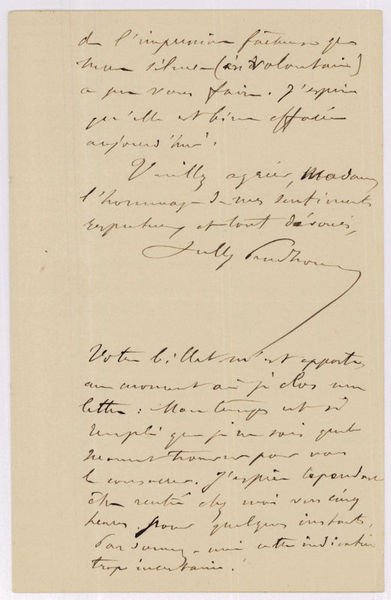 de l'impression fâcheuse que
mon silence (involontaire)
a pu vous faire. J'espère
qu'elle est bien effacée
aujourd'hui.
Veuillez agréer, Madame,
l'hommage de mes sentiments
respectueux et tout dévoués,
Sully Prudhomme
Votre billet m'est apporté
au moment où je clos ma
lettre : Mon temps est si
rempli que je ne sais quel
moment trouver pour vous
le consacrer. J'espère cependant
être rentré chez moi vers cinq
heures, pour quelques instants.
Pardonnez-moi cette indication
trop incertaine.